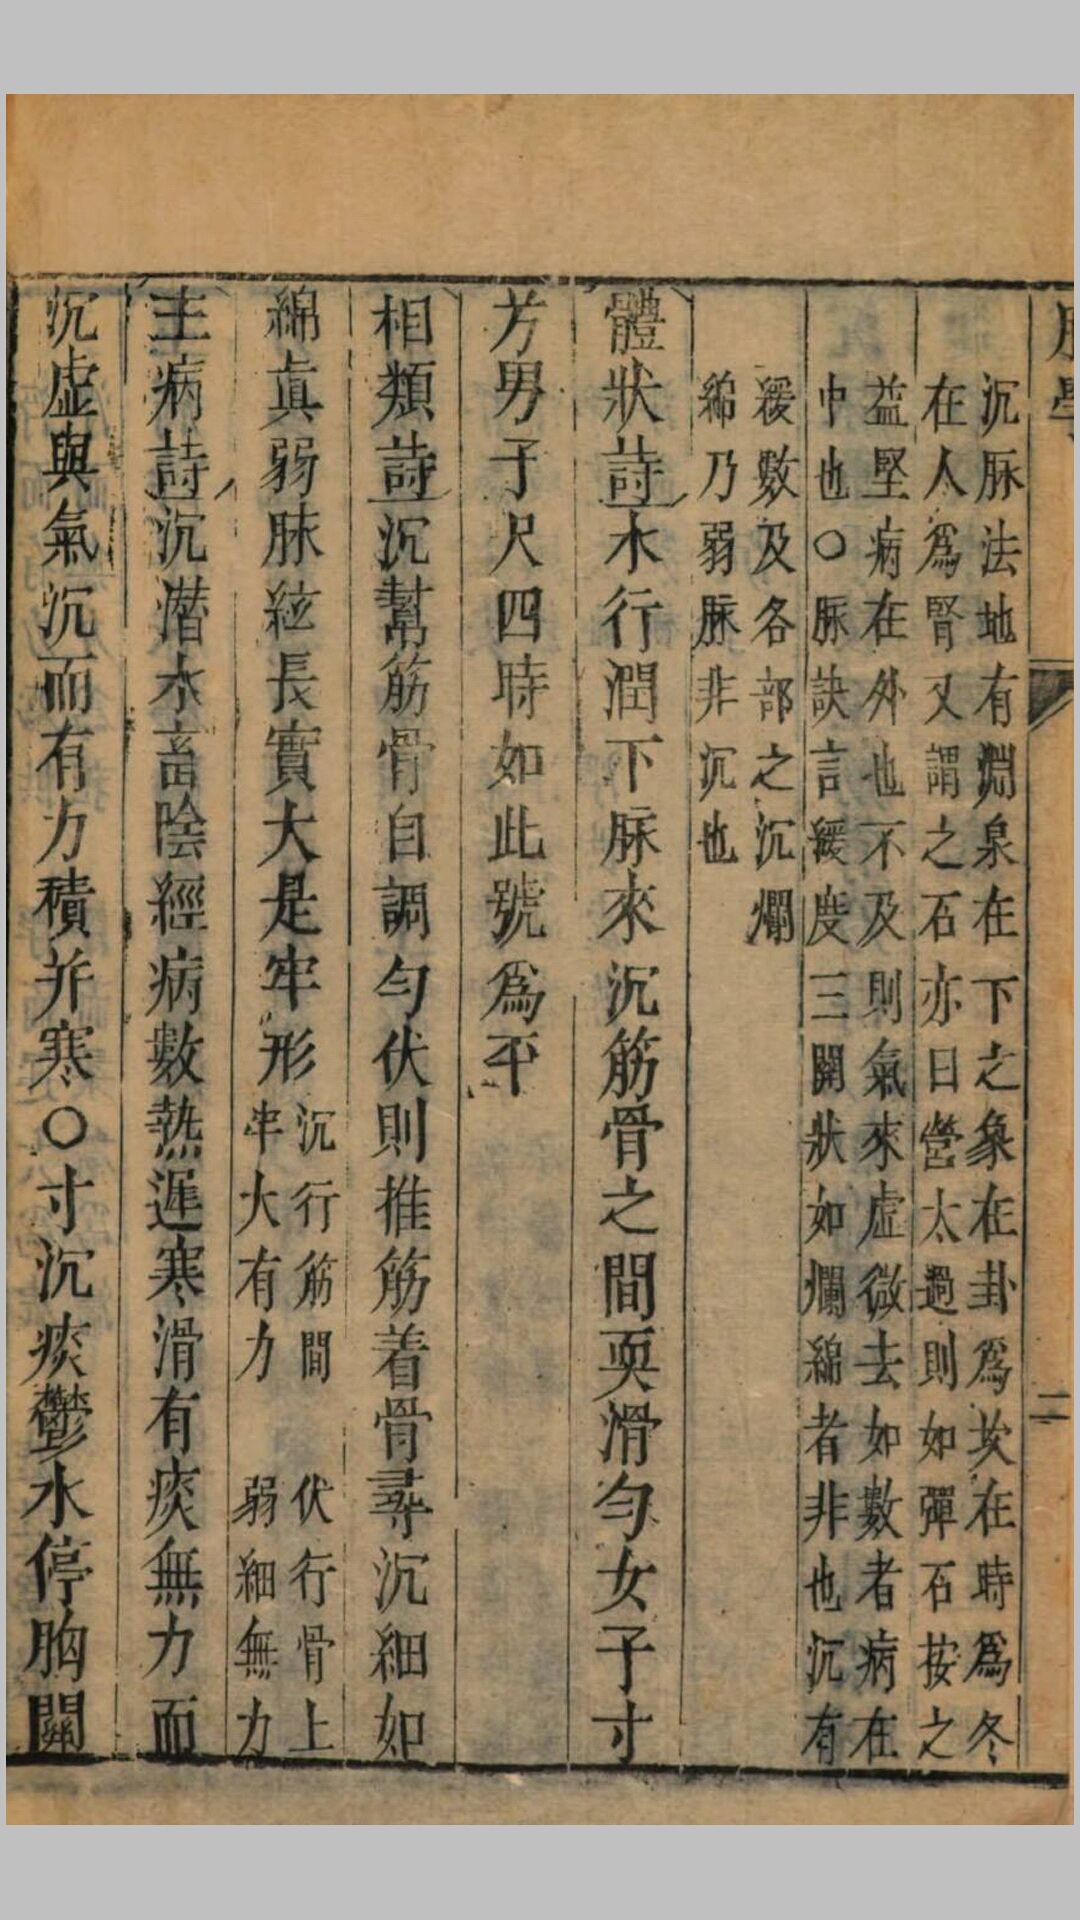 沉脉法地有淵泉在下之象在卦爲坎在時爲冬
在人爲腎又謂之石亦曰營太過則如彈石按之
益堅病在外也不及則氣來虛微去如數者病在
中也○脉訣言緩度三關狀如爛綿者非也沉有
緩數及各部之沉爛
綿乃弱脉非沉也
體狀詩水行潤下脉來沉筋骨之間耎滑勻女子寸
芳男子尺四時如此號爲平
相類詩沉幫筋骨自調勻伏則推筋着骨尋沉細如
綿眞弱脉絃長實大是牢形沉行筋間
牢大有力
伏行骨上
弱細無力
主病詩沉潛水畜陰經病數熱遲寒滑有痰無力而
沉虛與氣沉而有力積并寒○寸沉痰鬱水停胸關
二